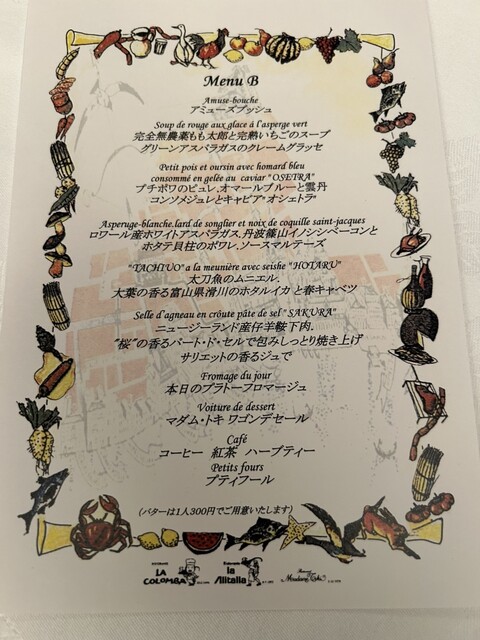 Menu B
Amuse-bouche
アミューズブッシュ
Soup de rouge aux glace á l'asperge vert
完全無農薬もも太郎と完熟いちごのスープ
グリーンアスパラガスのクレームグラッセ
Petit pois et oursin avec homard bleu
consommé en gelée au caviar "OSETRA"
プチポワのピュレ.オマールブルーと雲丹
コンソメジュレとキャビア"オシェトラ"
Asperuge-blanche.lard de songlier et noix de coquille saint-jacques
ロワール産ホワイトアスパラガス.丹波篠山イノシシベーコンと
ホタテ貝柱のポワレ.ソースマルテーズ
"TACHIUO" a la meunière avec seishe "HOTARU"
太刀魚のムニエル.
大葉の香る富山県滑川のホタルイカと春キャベツ
Selle d'agneau en croûte pâte de sel "SAKURA"
ニュージーランド産仔羊鞍下肉.
"桜"の香るパート・ド・セルで包みしっとり焼き上げ
サリエットの香るジュで
Fromage du jour
本日のプラトーフロマージュ
Voiture de dessert
マダム・トキ ワゴンデセール
Café
コーヒー 紅茶 ハーブティー
Petits fours
プティフール
(バターは1人300円でご用意いたします)
LA COLOMBA
la Alitalia
Madame Toki